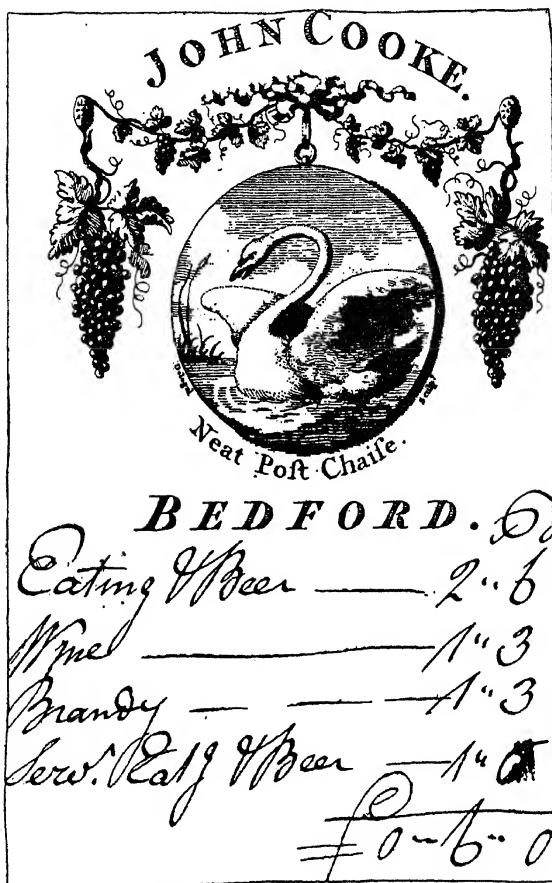 JOHN COOKE.
Neat Poſt Chaiſe.
BEDFORD.
Eating & Beer — 2 " 6
Wine — 1 " 3
Brandy — — — 1 " 3
Serv.t Eatg & Beer — 1 "
£ 0 " 6 " 0